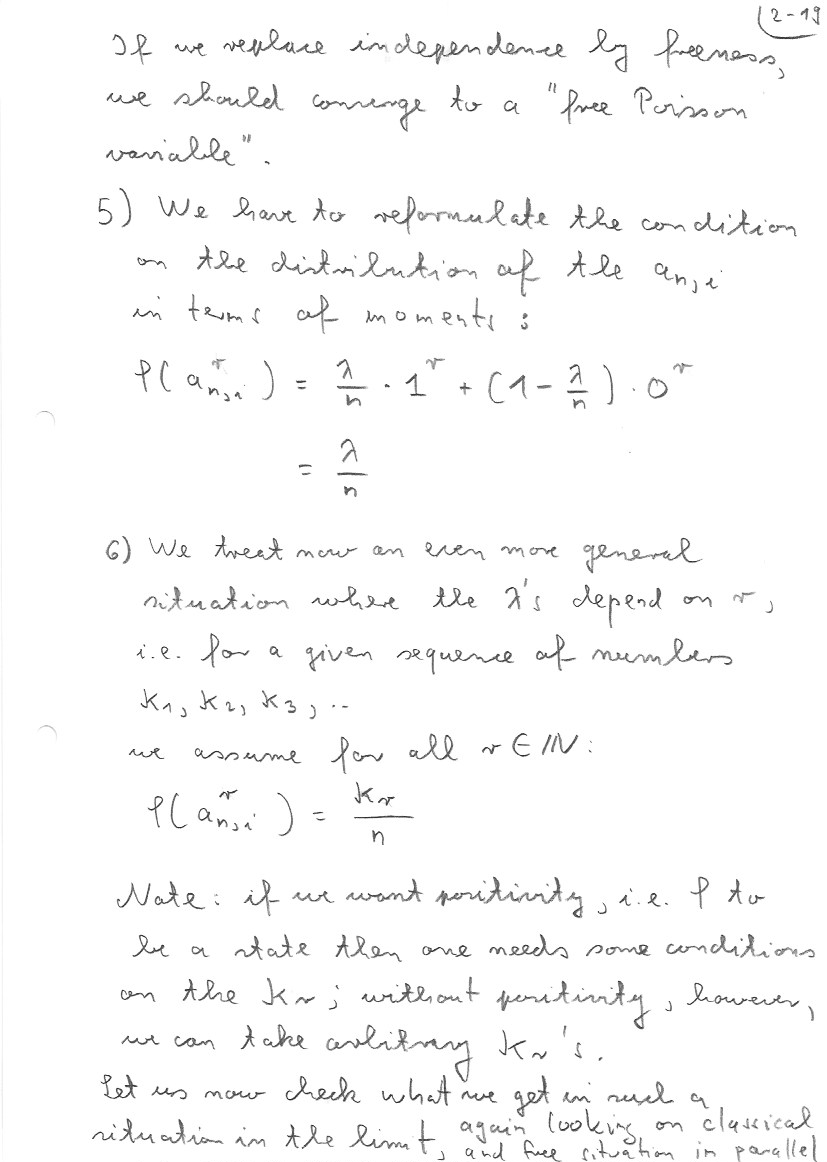 2-19
If we replace independence by freeness,
we should converge to a "free Poisson
variable".
5) We have to reformulate the condition
on the distribution of the a_{n,i}
in terms of moments:
φ(a_{n,i}^r) = λ/n · 1^r + (1 - λ/n) · 0^r
= λ/n
6) We treat now an even more general
situation where the λ's depend on r,
i.e. for a given sequence of numbers
κ_1, κ_2, κ_3, ..
we assume for all r ∈ ℕ:
φ(a_{n,i}^r) = κ_r/n
Note: if we want positivity, i.e. φ to
be a state then one needs some conditions
on the κ_r; without positivity, however,
we can take arbitrary κ_r's.
Let us now check what we get in such a
situation in the limit, again looking on classical
and free situation in parallel